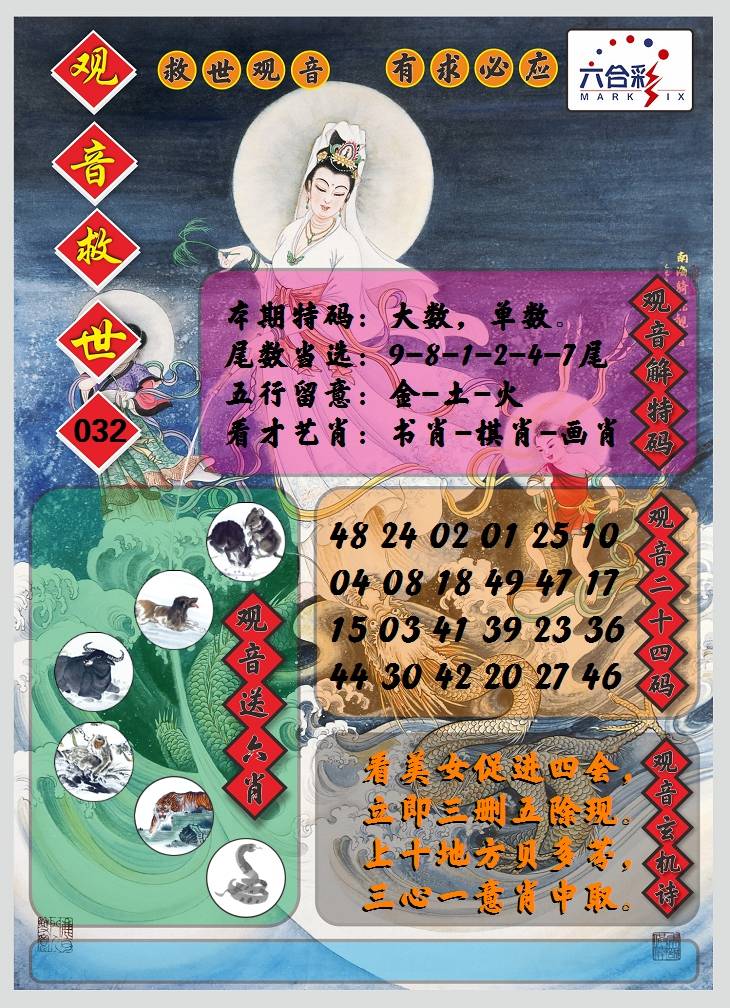 观音救世
032
救世观音 有求必应
六合彩
MARK SIX
本期特码：大数，单数。
尾数当选：9-8-1-2-4-7尾
五行留意：金-土-火
看才艺肖：书肖-棋肖-画肖
观音解特码
48 24 02 01 25 10
04 08 18 49 47 17
15 03 41 39 23 36
44 30 42 20 27 46
观音二十四码
观音送六肖
看美女促进四会，
立即三删五除现。
上十地方贝多芬，
三心一意肖中取。
观音玄机诗